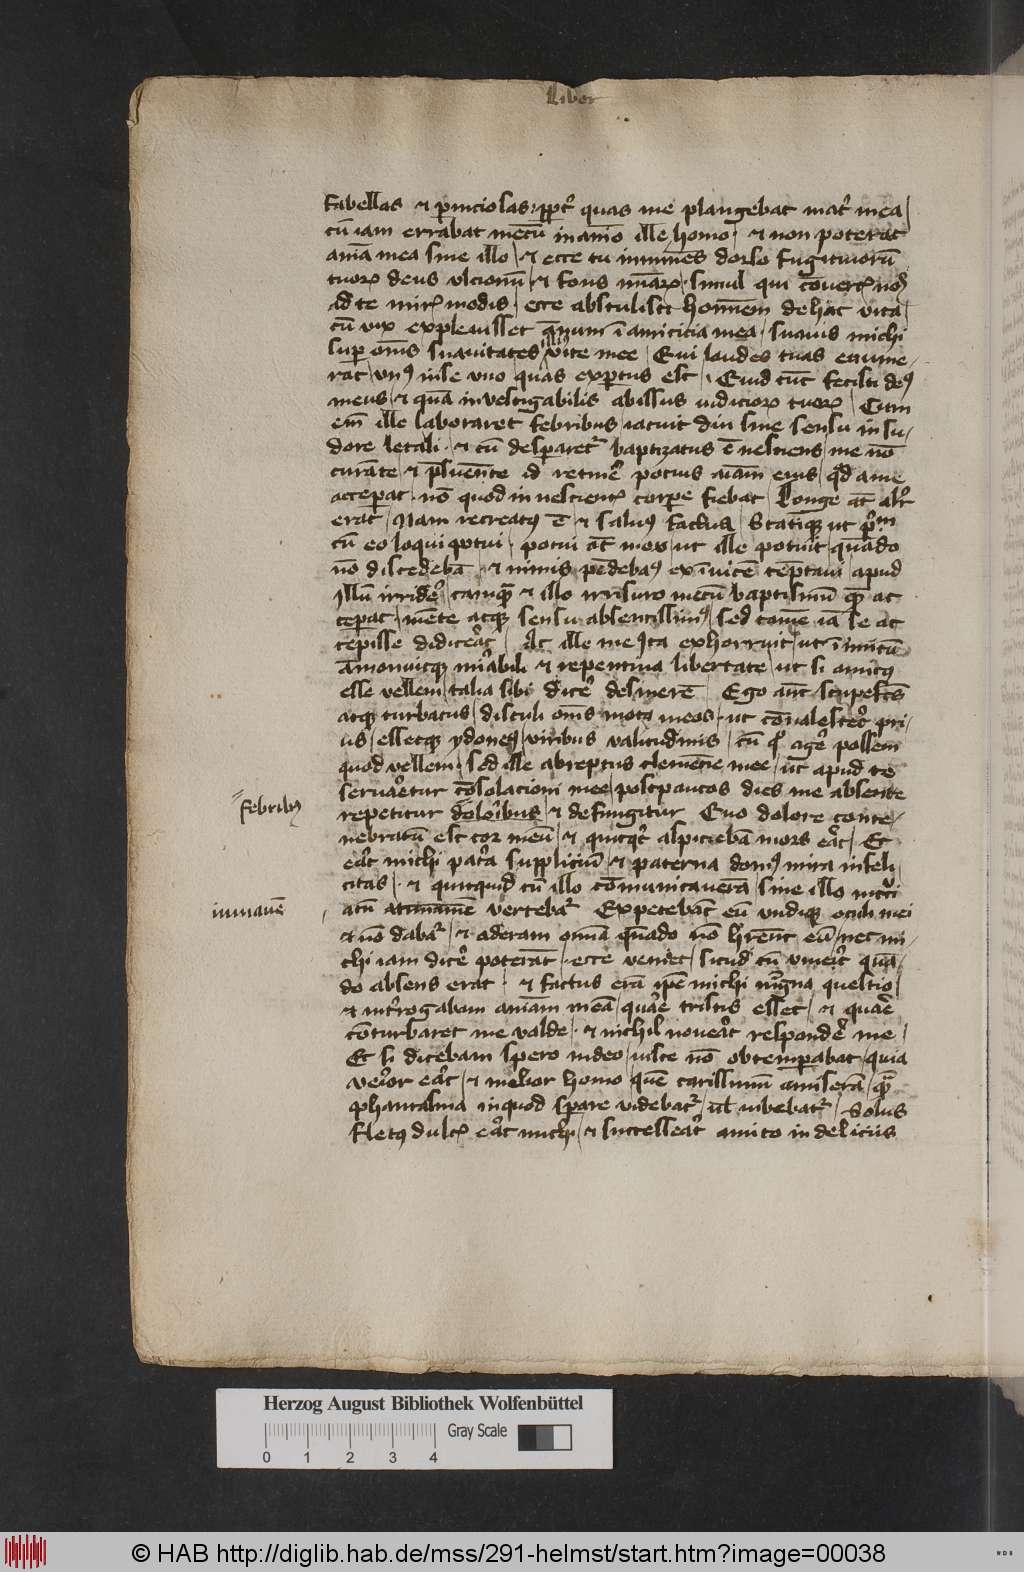 Liber
fabellas et p̄niciosas / ppt᷑ quas me plangebat mat᷑ mea /
cū iam errabat mecū in aniō ille homo · et non poterat
aīa mea sine illo / et ecce tu imminēs dorso fugitiuorū
tuoꝝ deus vlcionū / et fons mīaꝝ · simul qui cōuert᷑ nos
ad te mir᷑ modis · ecce abstulisti hominem de hac vita
cū vix expleuisset ānum ī amicicia mea / suauis michi
sup om̄s suauitates illi᷒ vite mee / Qui laudes tuas enume-
rat / vn᷒ in se vno quas exptus est · Quid tūc fecisti de᷒
meus / et quā inuestigabilis abissus iudicioꝝ tuoꝝ / Cum
em̄ ille laboraret febribus iacuit diu sine sensu in su-
dore letali · et cū desparet᷑ baptizatus ē nesciens me nō
curāte / et p̄sumēte id retine᷑ pocius aīam eius / qd̄ a me
acceperat · nō quod in nescient᷑ corpe fiebat / Longe at̄ alit᷑
erat / Nam recreat᷒ ē et salu᷒ factus / Statimqꝫ ut p̄m
cū eo loqui potui · potui at̄ mox ut ille potuit / quādo
nō discedebā · et nimis pēdebam᷒ ex īuicē / tēptaui apud
illū irride᷑ / tamqꝫ et illo irrisuro mecū baptismū quē ac
ceperat · mēte atqꝫ sensu absentissim᷒ / sed tamē iā se ac
cepisse didice᷑at / At ille me ita exhorruit / ut īimicū
āmonuitqꝫ mirabili et repentina libertate / ut si amic᷒
esse vellem / talia sibi dice᷑ desinerē / Ego aūt stupefc̄s
atqꝫ turbatus / distuli om̄s mot᷒ meos · ut cōualescet᷑ pri-
us / essetqꝫ ydone᷒ / viribus valitudinis / cū q° age᷑ possem
quod vellem · sed ille abreptus clemēcie mee / ut apud te
serua᷑etur cōsolacioni mee / post paucos dies me absente
febrib᷒
repetitur doloribus / et defungitur Quo dolore conte-
nebratū est cor meū / et quicqd᷑ aspiciebā mors e᷑at / Et
e᷑at michi pat᷑a suppliciū / et paterna dom᷒ mira infeli
citas / · et quicquid cū illo cōmunicauerā / sine illo in cruci
inmanē
atū atcmamē vertebat᷑ Expetebāt eū vndiqꝫ oculi mei
et nō dabat᷑ / et oderam omīa quādo nō hrēnt eū / nec mi-
chi iam dice᷑ poterāt · ecce veniet / sicud cū viue᷑et quā-
do absens erat · et factus erā ipē michi m̄gna questio /
et int᷑rogabam animam meā / qua᷑e tristis esset / et qua᷑e
cōturbaret me valde / · et nichil noue᷑at respondē᷑ me /
Et si dicebam spero in deo / iuste nō obtemperabat / quia
verior e᷑at / et melior homo quē carissimū amiserā / qꝫ
phantasma in quod sperare iubebat᷑ / Solus
flet᷒ dulc᷑ e᷑at michi / et successe᷑at amico in deliciis
Herzog August Bibliothek Wolfenbüttel
Gray Scale
0 1 2 3 4
© HAB http://diglib.hab.de/mss/291-helmst/start.htm?image=00038